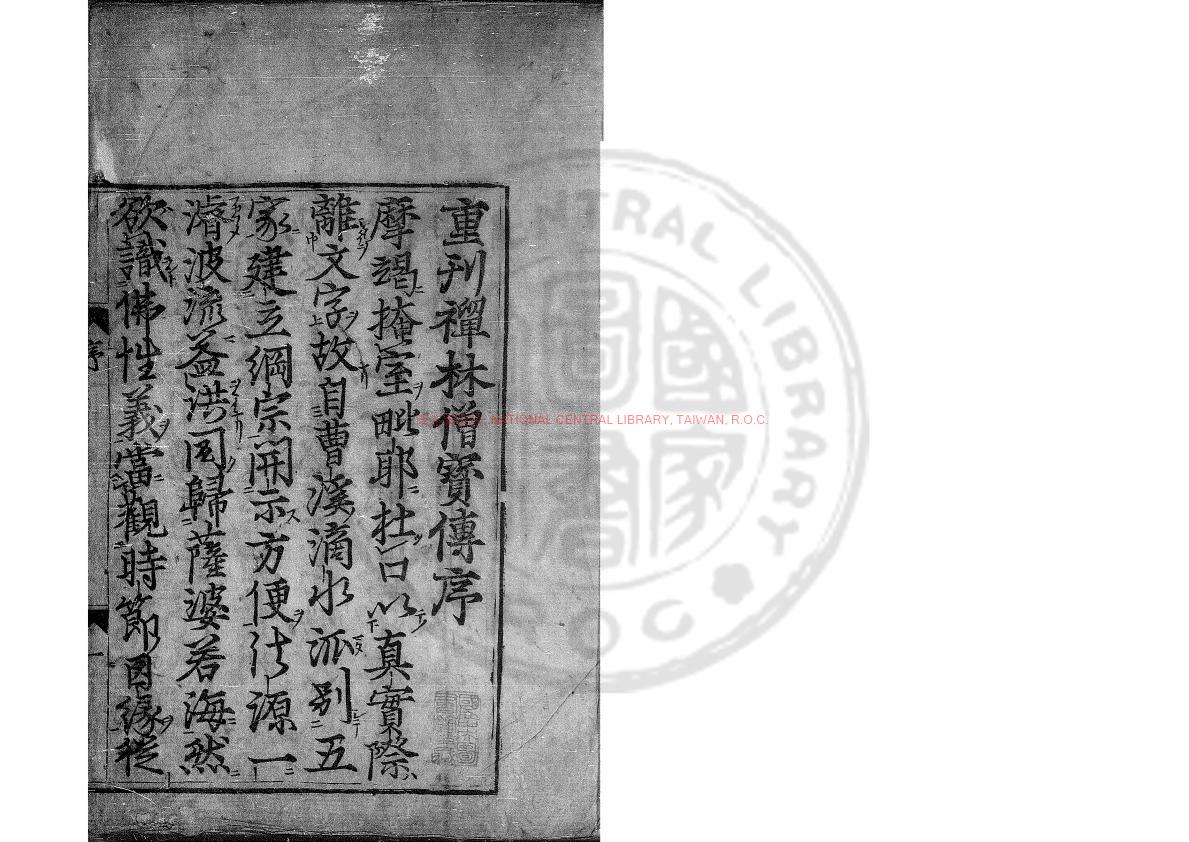 重刊禪林僧寶傳序
摩竭掩室毗耶杜口以真實際
離文字故自曹溪滴水派別五
家建立綱宗開示方便法源一
濬波流益洪同歸薩婆若海然
欲識佛性義當觀時節因緣從
序
一
NATIONAL CENTRAL LIBRARY, TAIWAN, R.O.C.